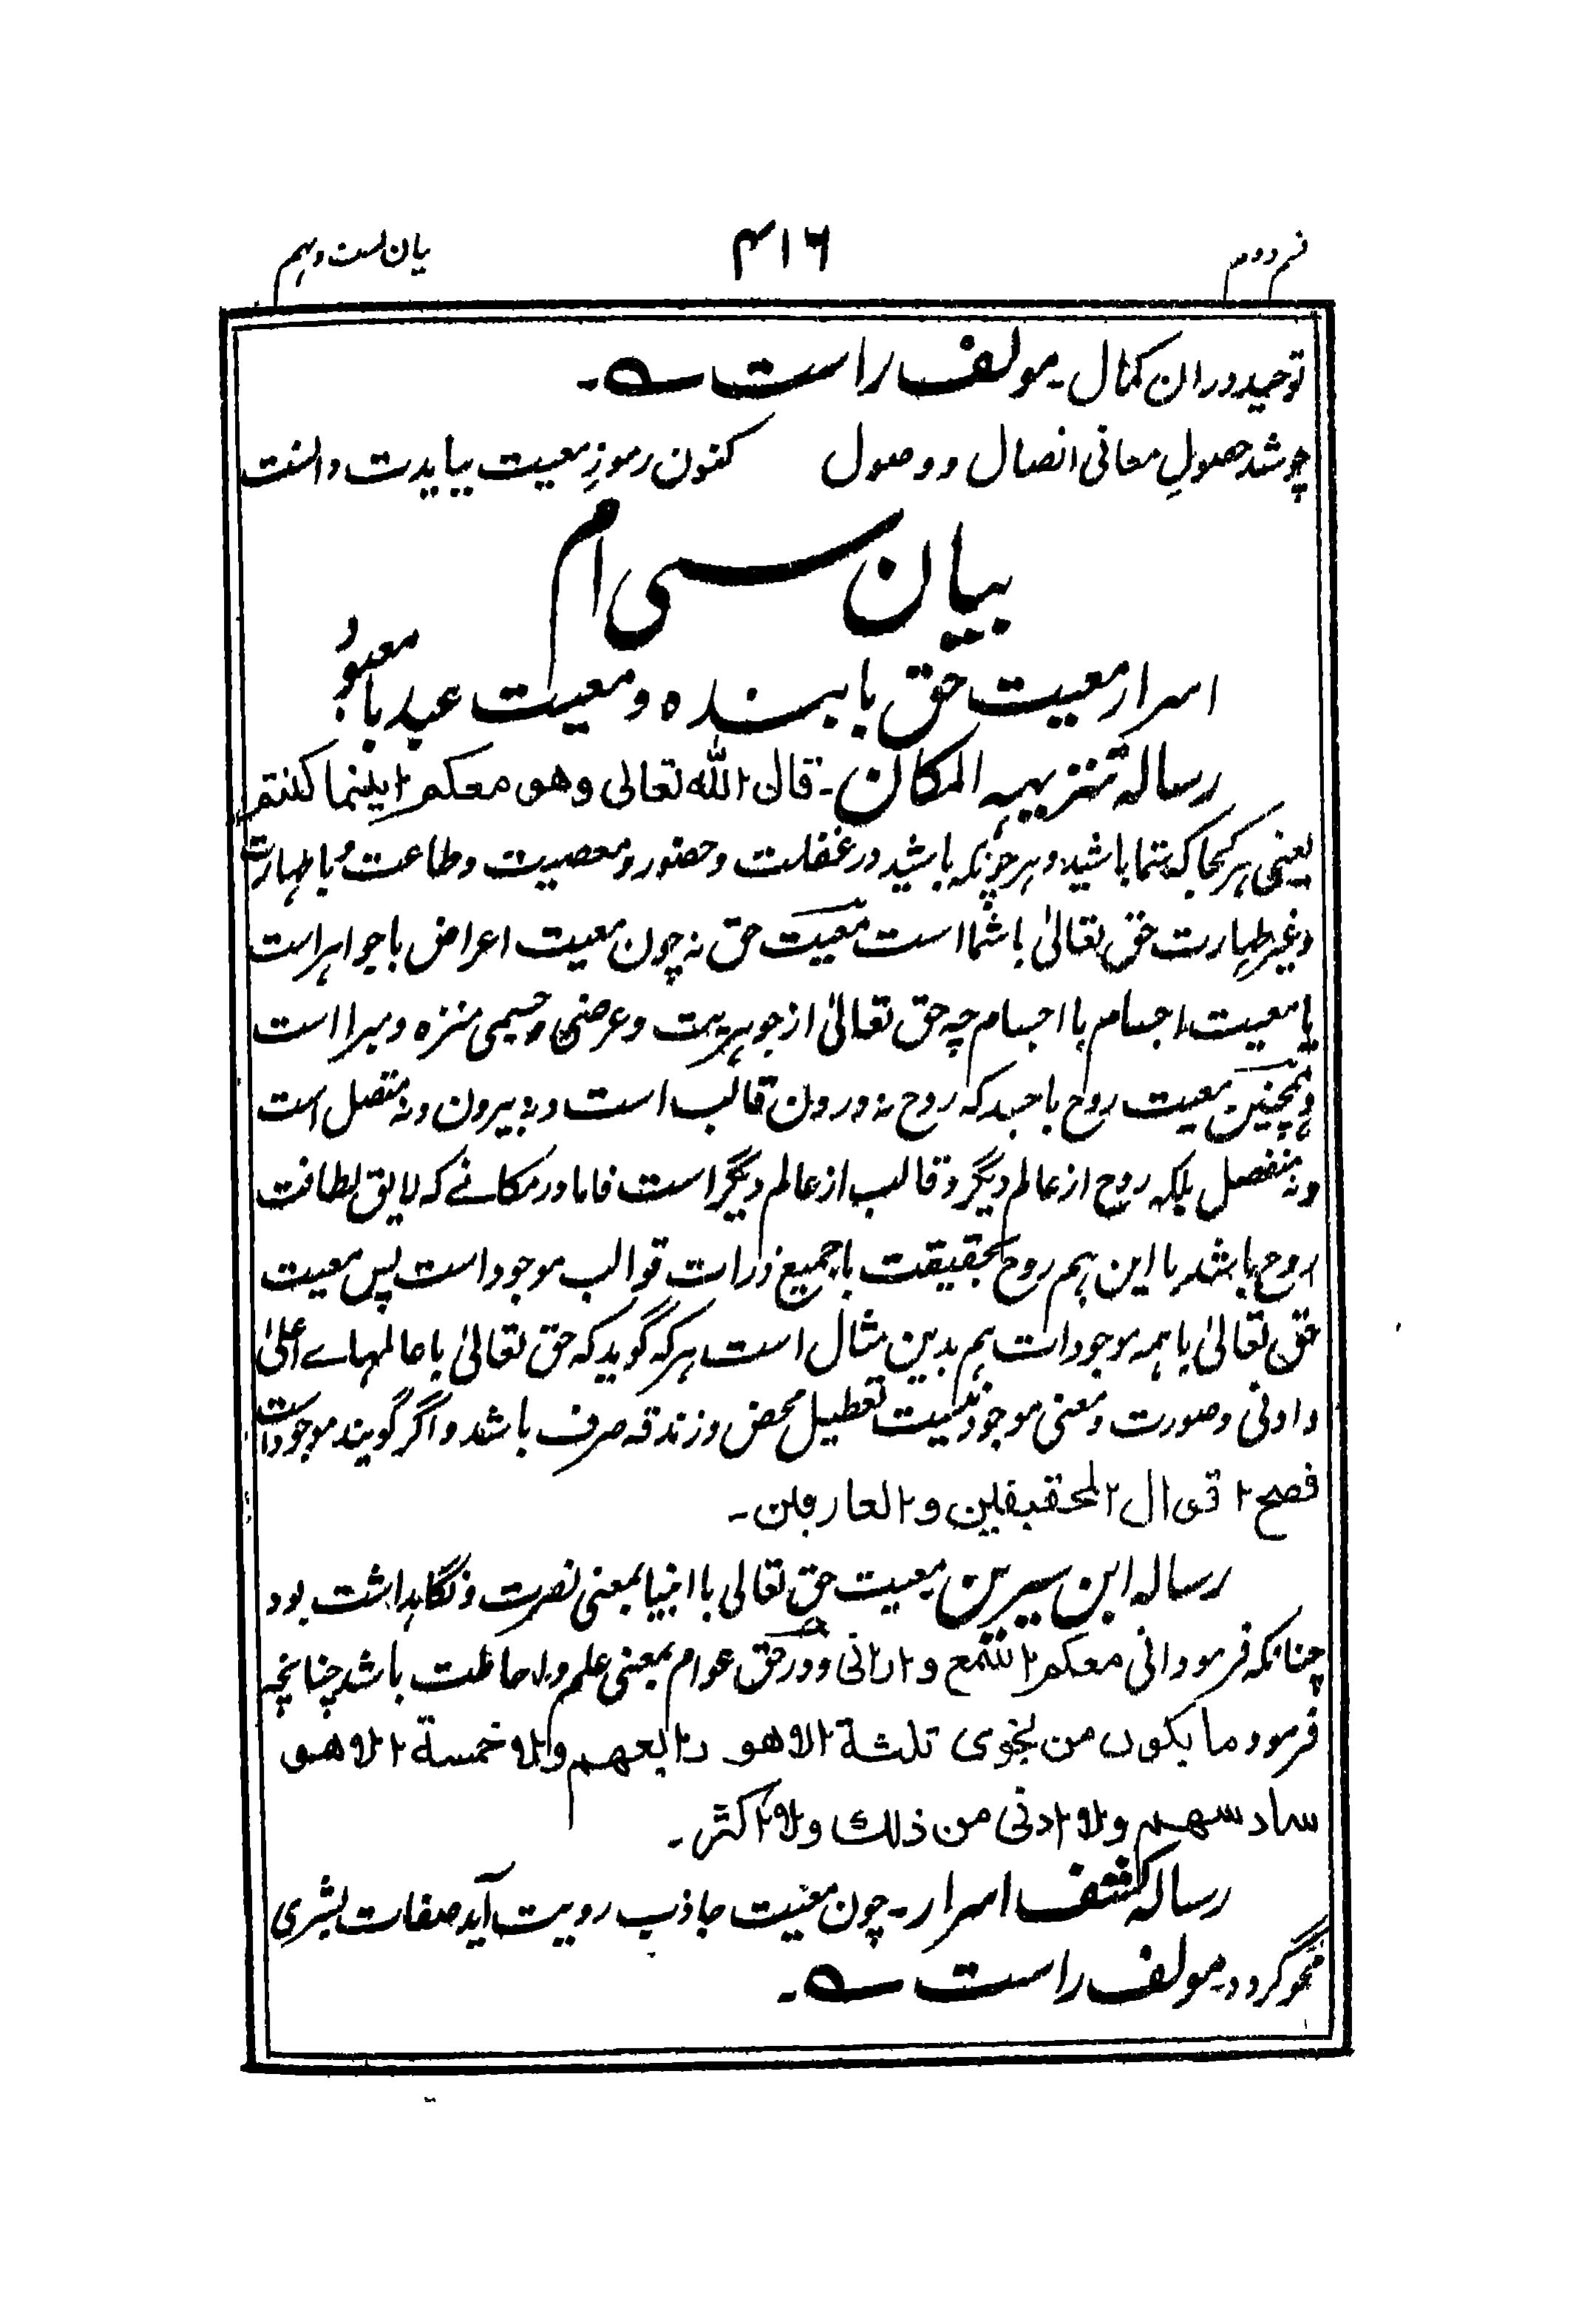 قسم دوم ۴۱۶ بیان بست و نهم
توحید دران کمال۔ مولف راست ؎۔
چو شد حصولِ معانی اتصال و وصول کنون رموزِ معیت ببایدت دانست
بیان سی ام
اسرار معیت حق با بنده و معیت عبد با معبود
رساله تنزیهه المکان۔ قال الله تعالی وهو معکم اینما کنتم
یعنی هر کجا که شما باشید و هر چونکه باشید در غفلت و حضور و معصیت و طاعت و با طهارت
و غیر طهارت حق تعالیٰ با شما است معیت حق نه چون معیت اعراض با جواهر است
یا معیت اجسام با اجسام چه حق تعالیٰ از جوهریت و عرضی و جسمی منزه و مبرا است
و همچنین معیت روح با جسد که روح نه درون قالب است و نه بیرون و نه متصل است
و نه منفصل بلکه روح از عالم دیگر و قالب از عالم دیگر است فاما در مکانے که لایق لطافت
روح باشد با این هم روح بحقیقت با جمیع ذرات قوالب موجود است پس معیت
حق تعالیٰ با همه موجودات هم بدین مثال است هر که گوید که حق تعالیٰ با عالمهاے اعلیٰ
و ادنی و صورت و معنی موجود نیست تعطیل محض و زندقه صرف باشد و اگر گویند موجود است
فصح اقوال المحققین و العارفین۔
رساله ابن سیرین معیت حق تعالی با انبیا بمعنی نصرت و نگاهداشت بود
چنانکه فرمود انی معکم اسمع و ارانی و در حق عوام بمعنی علم و احاطت باشد چنانچه
فرمود ما یکون من نجوی ثلثة الا هو رابعهم ولا خمسة الا هو
سادسهم ولا ادنی من ذلك ولا اکثر۔
رساله کشف اسرار۔ چون معیت جاذب رویت آید صفات بشری
محو گردد۔ مولف راست ؎۔